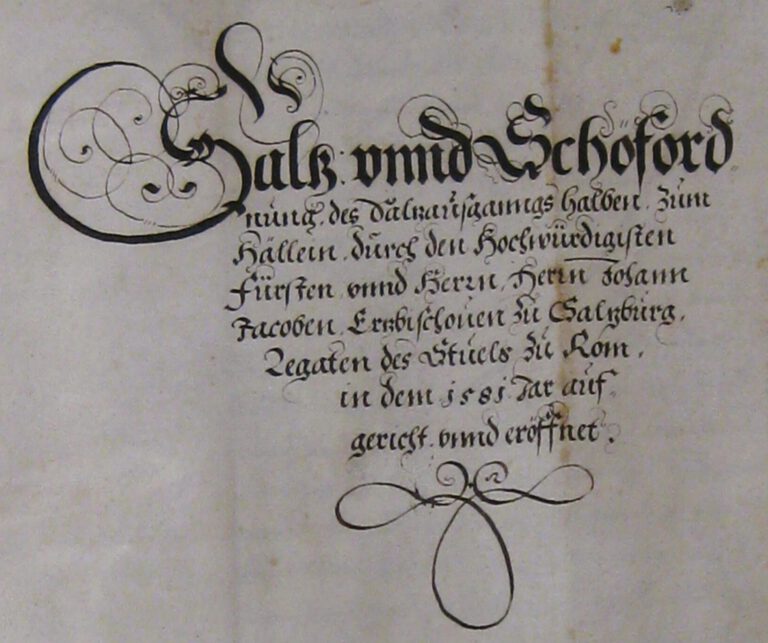 Saltz vnnd Schöford
nung, des Saltzausganngs halben, zum
Hällein, durch den Hochwürdigisten
Fürsten vnnd Herrn, Herrn Johann
Jacoben, Ertzbischouen zu Saltzburg,
Legaten des Stuels zu Rom,
in dem 1581 Jar auf
gericht, vnnd eröffnet.